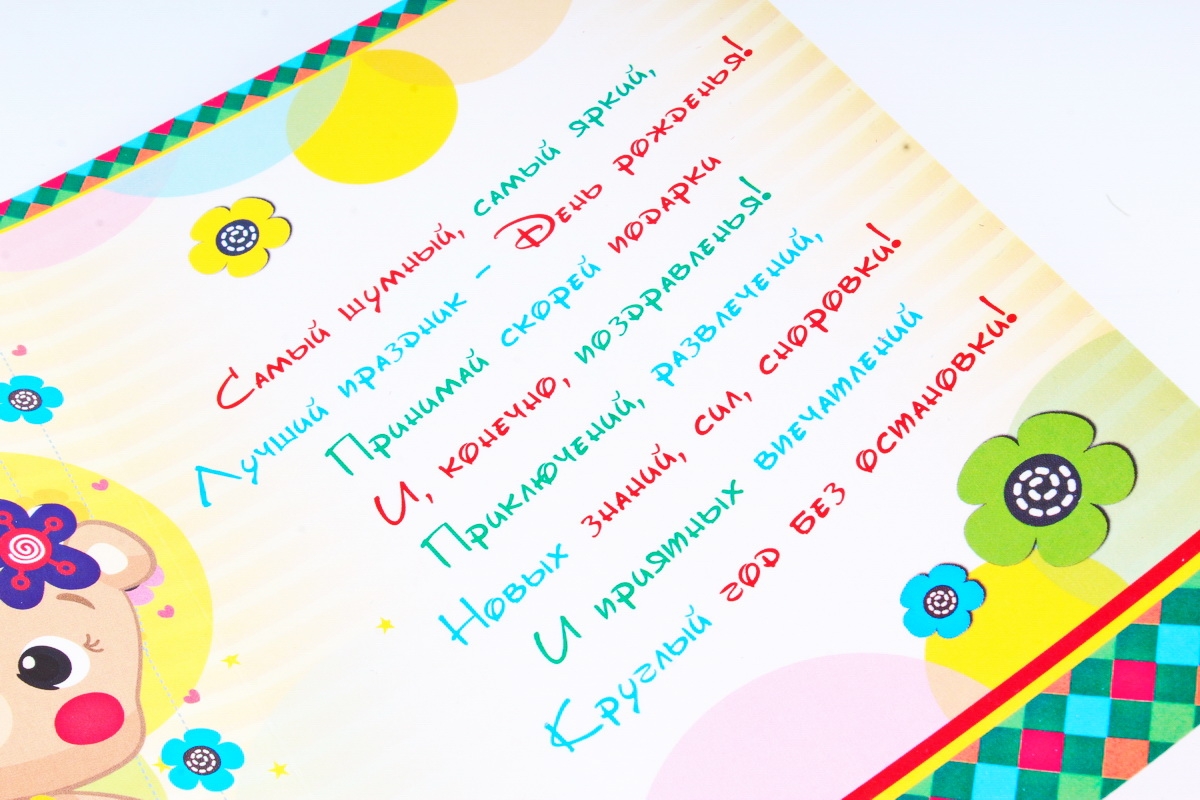 Самый шумный, самый яркий,
Лучший праздник - День рожденья!
Принимай скорей подарки
И, конечно, поздравленья!
Приключений, развлечений,
Новых знаний, сил, сноровки!
И приятных впечатлений
Круглый год без остановки!